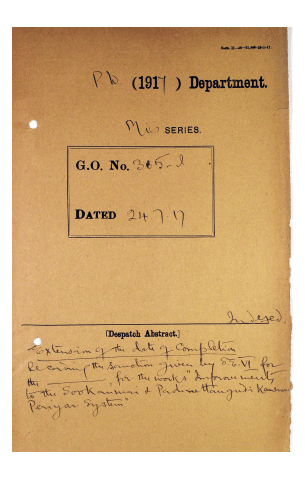 P.W (1917) Department.
Mis SERIES.
G.O. No. 365-I
DATED 24 7. 17
Indexed.
[Despatch Abstract.]
Extension of the date of Completion
the sanction given by S.E. VI for
the , for the works "Improvements
to the &
Periyar System"